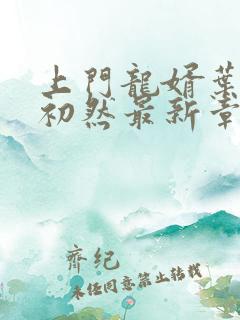 上門龍婿葉
初然最新章
齊紀
未经同意禁止转载